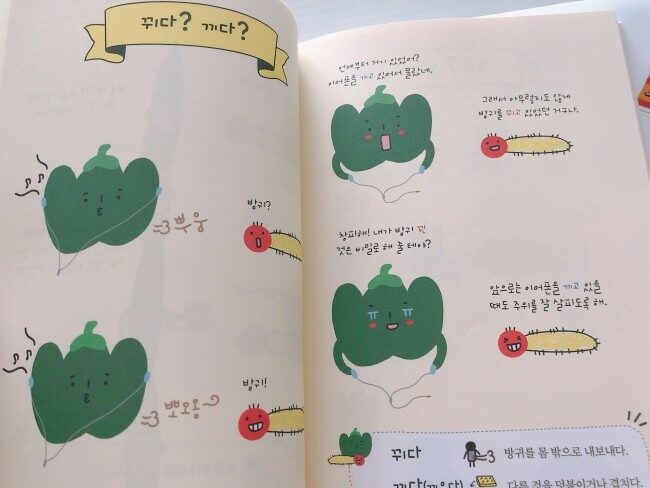 뀌다? 끼다?
뿌웅
방귀?
뽀오옹~
방귀!
언제부터 거기 있었어?
이어폰을 끼고 있어서 몰랐네.
그래서 아무렇지도 않게
방귀를 뀌고 있었던 거구나.
창피해! 내가 방귀 뀐
것은 비밀로 해 줄 테야?
앞으로는 이어폰을 끼고 있을
때도 주위를 잘 살피도록 해.
뀌다
방귀를 몸 밖으로 내보내다.
끼다(끼우다)
다른 것을 덧붙이거나 겹치다.